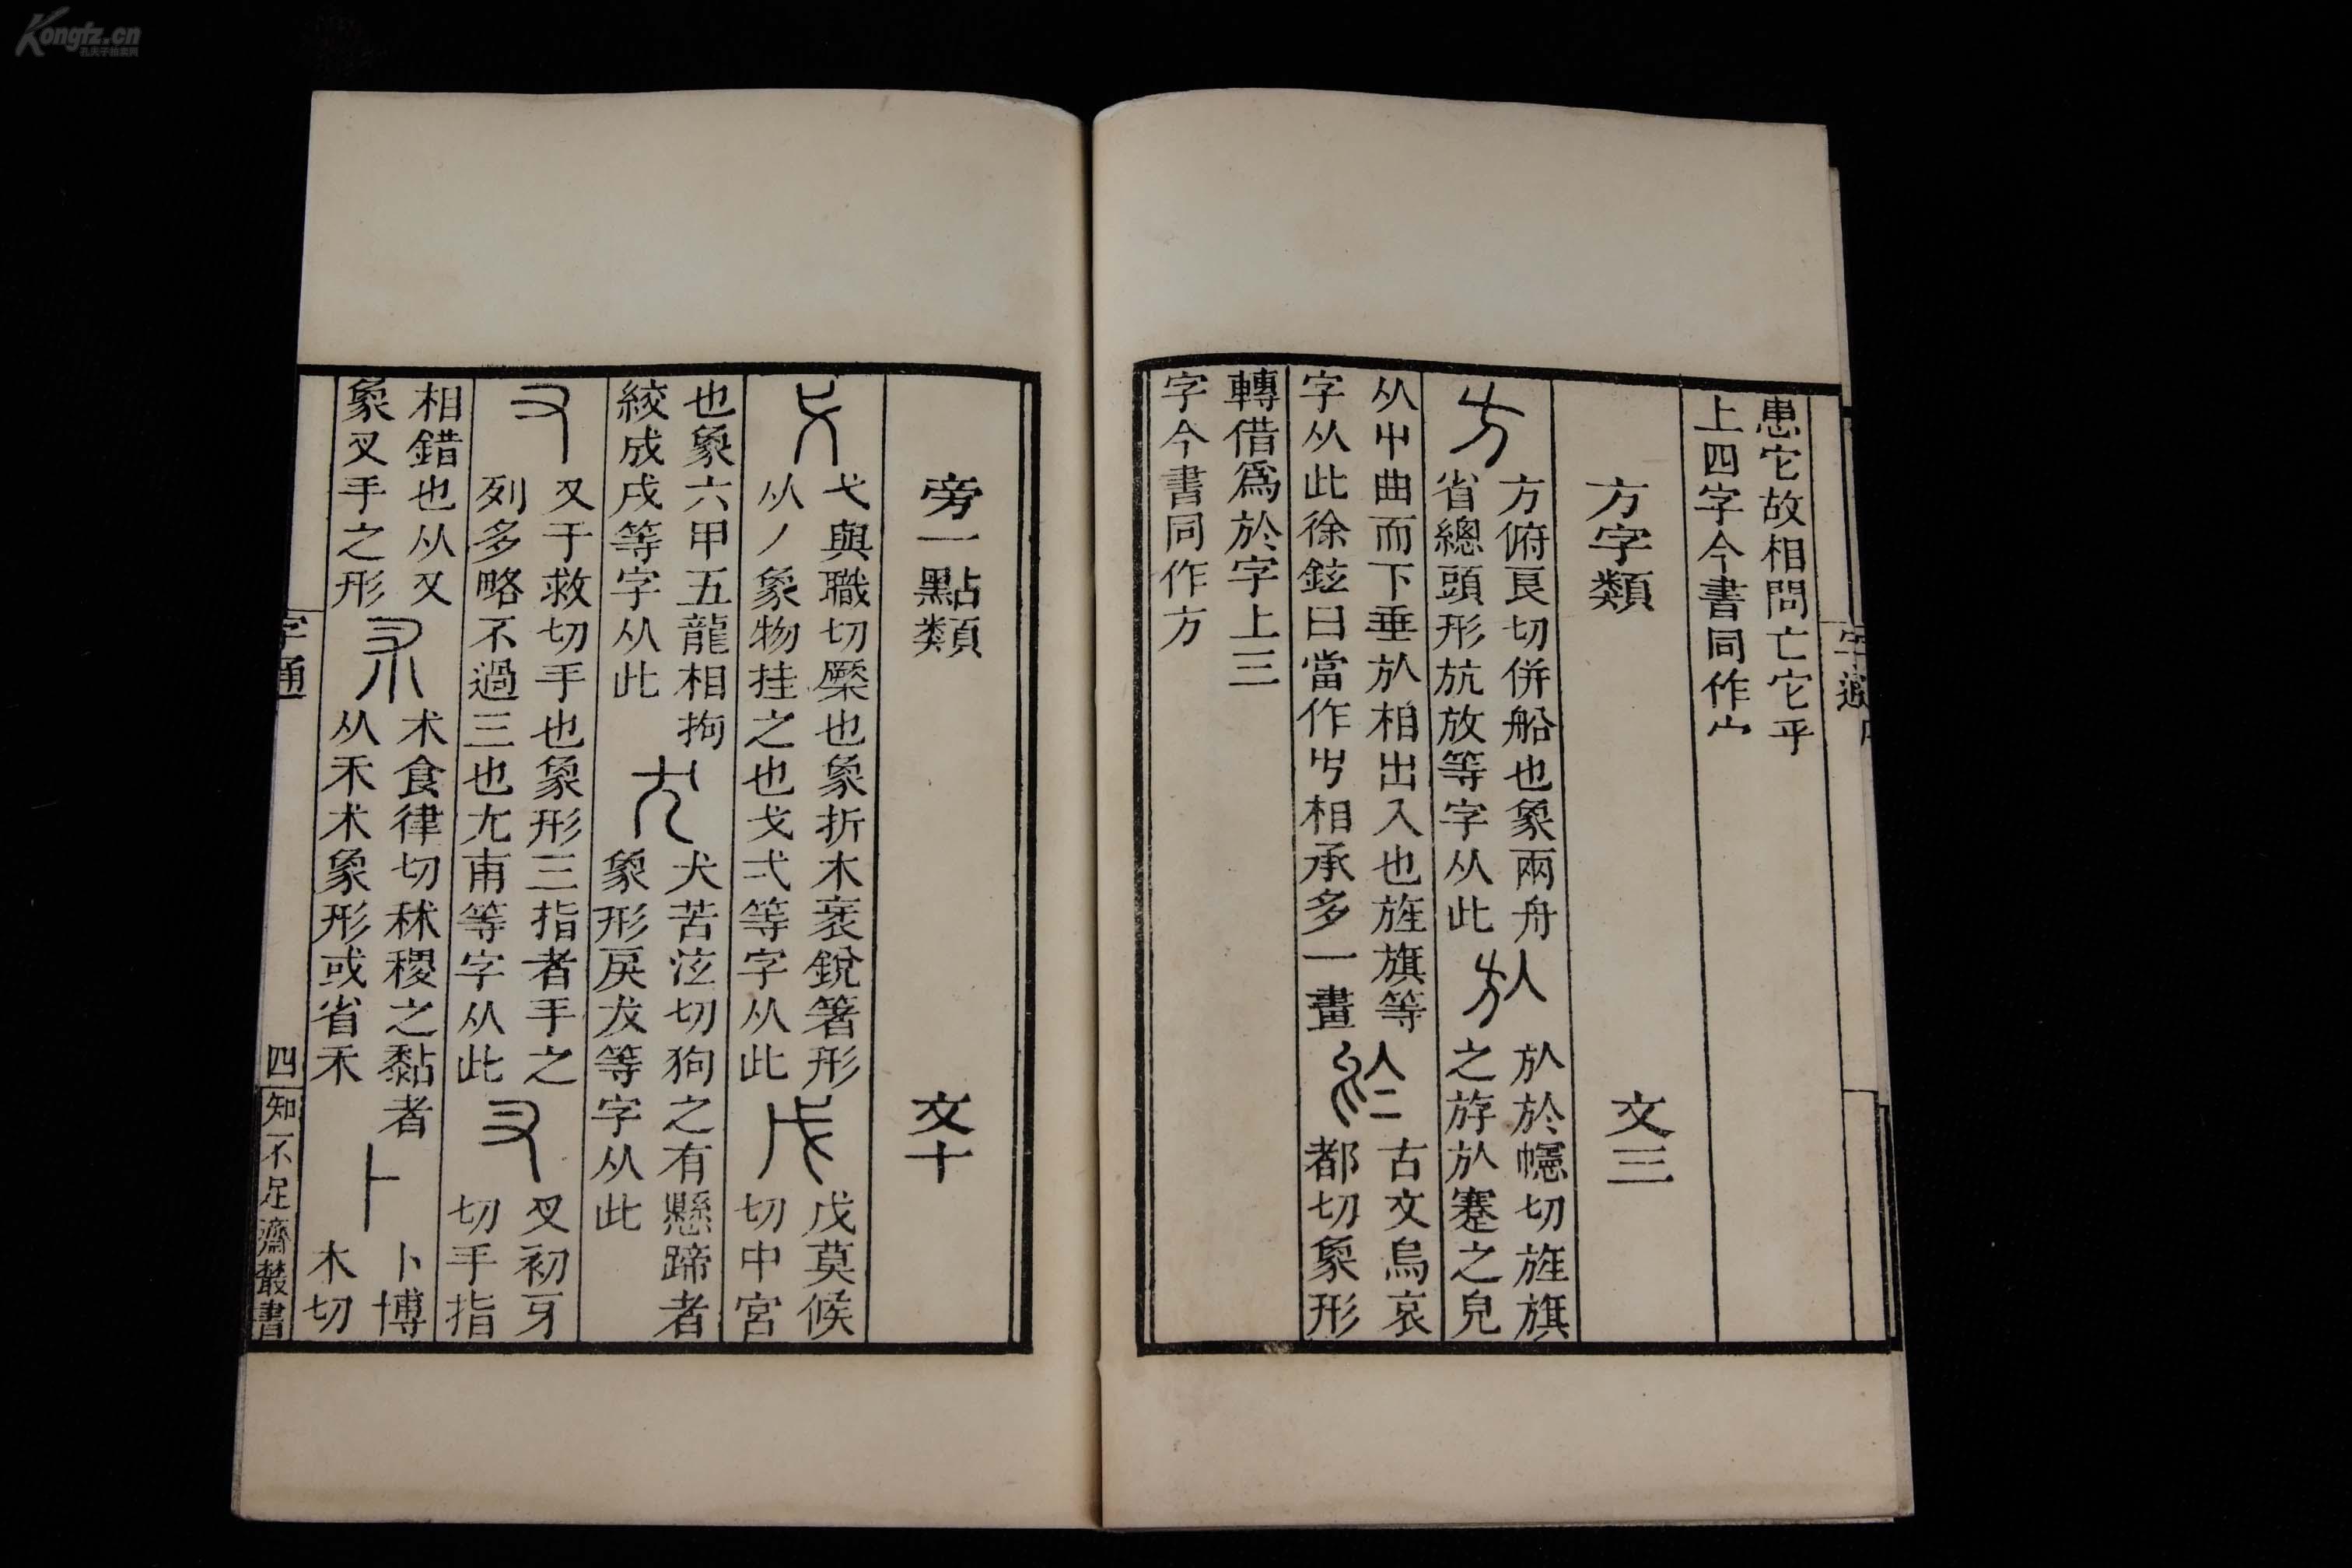 字通
患它故相問亡它乎
上四字今書同作宀
方字類　文三
方
方俯良切併船也象兩舟
省總頭形斻放等字从此
㫃
㫃於幰切旌旗
之斿㫃蹇之皃
从屮曲而下垂㫃相出入也旌旗等
字从此徐鉉曰當作相承多一畫
於
古文烏哀
都切象形
轉借爲於字上三
字今書同作方
旁一點類　文十
弋
弋與職切橜也象折木衺銳箸形
从丿象物挂之也戈弍等字从此
戊
戊莫候
切中宮
也象六甲五龍相拘
絞成戌等字从此
犬
犬苦泫切狗之有懸蹄者
象形戾犮等字从此
又
又于救切手也象形三指者手之
列多略不過三也尤甫等字从此
叉
叉初牙
切手指
相錯也从又
象叉手之形
朮
朮食律切秫稷之黏者
从禾朮象形或省禾
卜
卜博
木切
字通　四　知不足齋叢書
Kongfz.cn